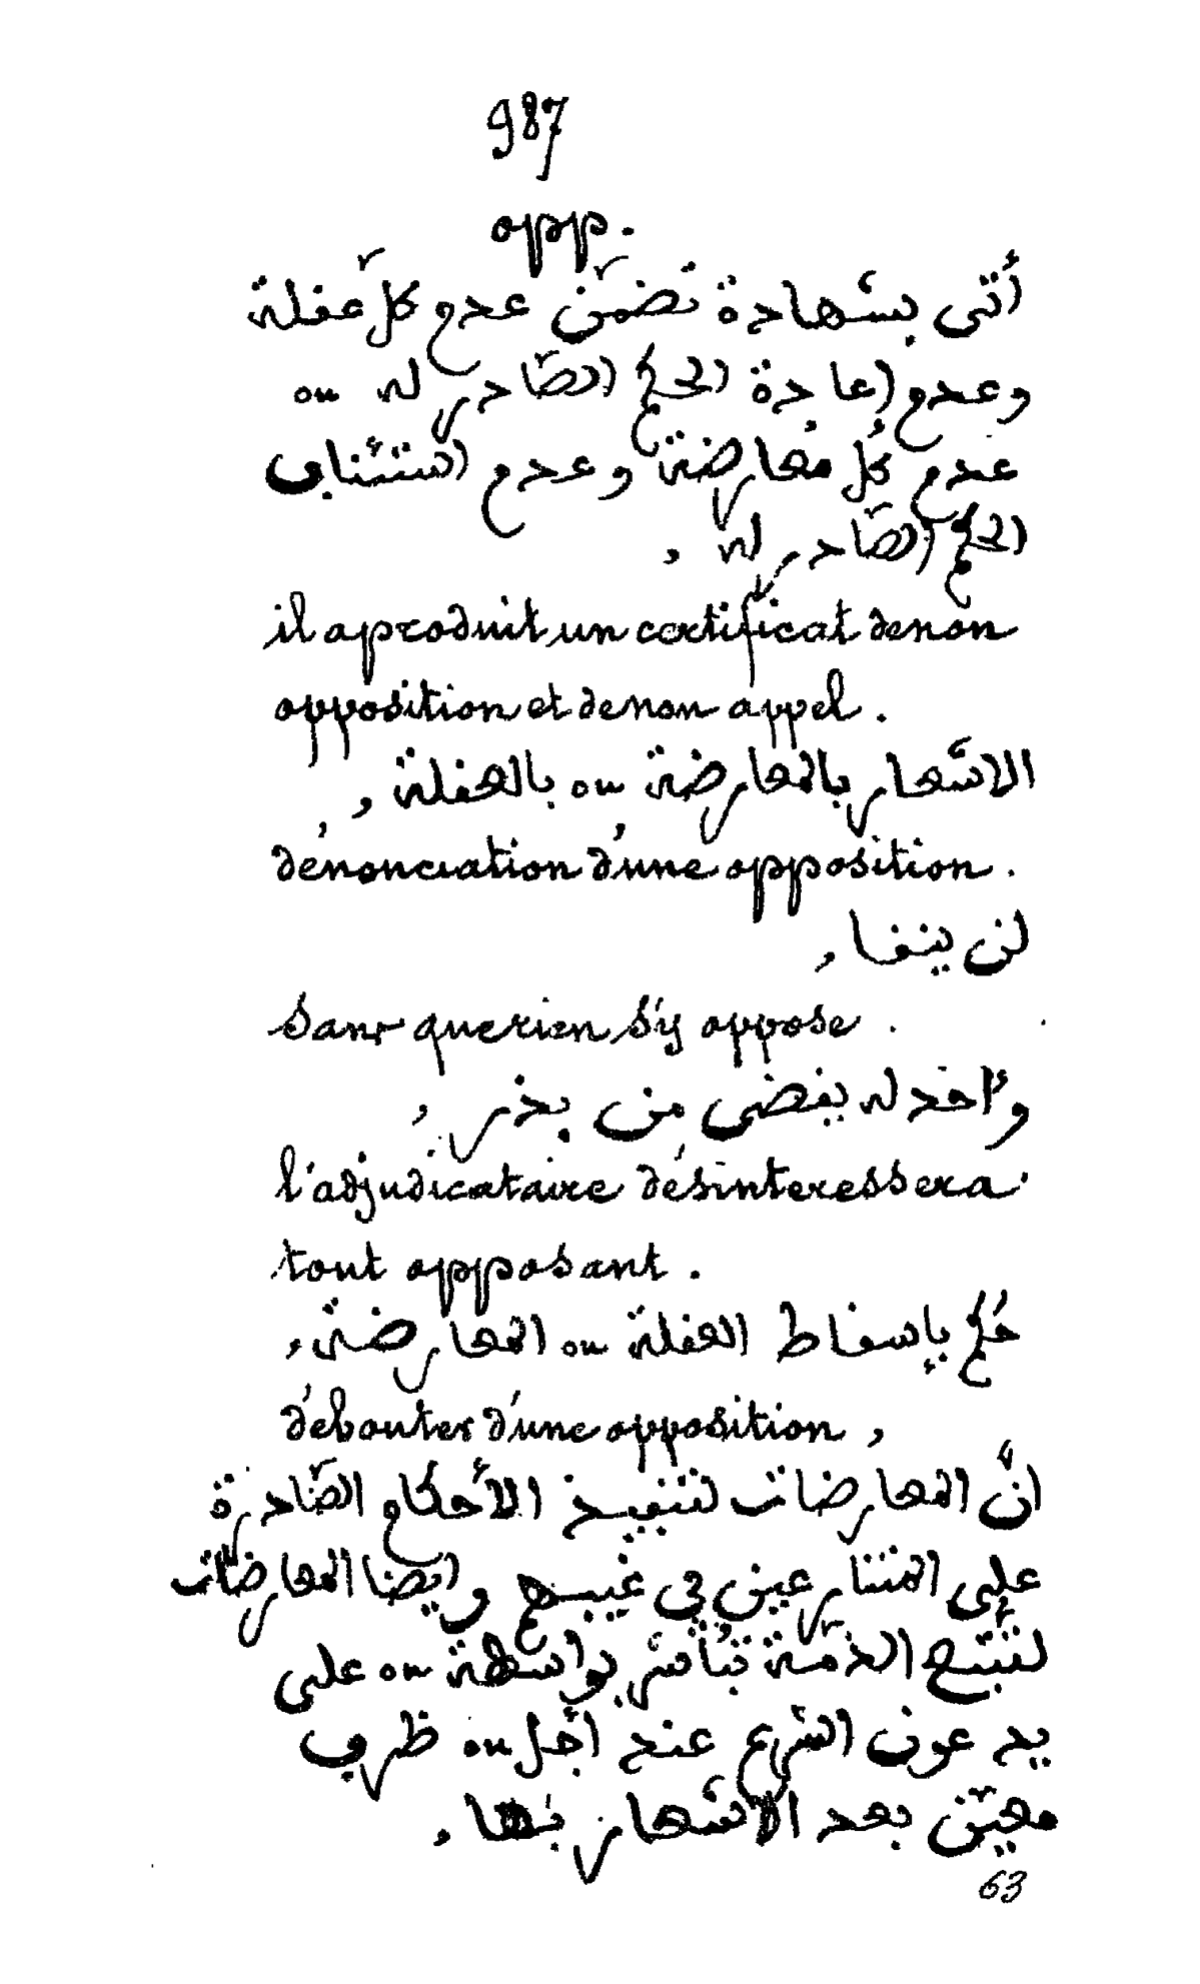 987
opp.
أتى بشهادة تضمّن عدم كلّ عفلة
وعدم إعادة الحكم الصّادر له ou
عدم كُل مُعارضة وعدم استئناف
الحكم الصّادر له ,
il a produit un certificat de non
opposition et de non appel.
الاشهار بالمعارضة ou بالعفلة ,
dénonciation d'une opposition.
لن ينفا ,
sans que rien s'y oppose.
من يخر ,
l'adjudicataire désinteressera
tout opposant.
حُكم بإسفاط العفلة ou المعارضة ,
débouter d'une opposition,
انّ المعارضات لتنفيذ الأحكام الصّادرة
على المتنازعين في غيبتهم وايضا المعارضات
الذمّة تُباشر بواسطة ou على
يد عون الشرع عند أجل ou ظرف
معيّن بعد الاشهار بها ,
63